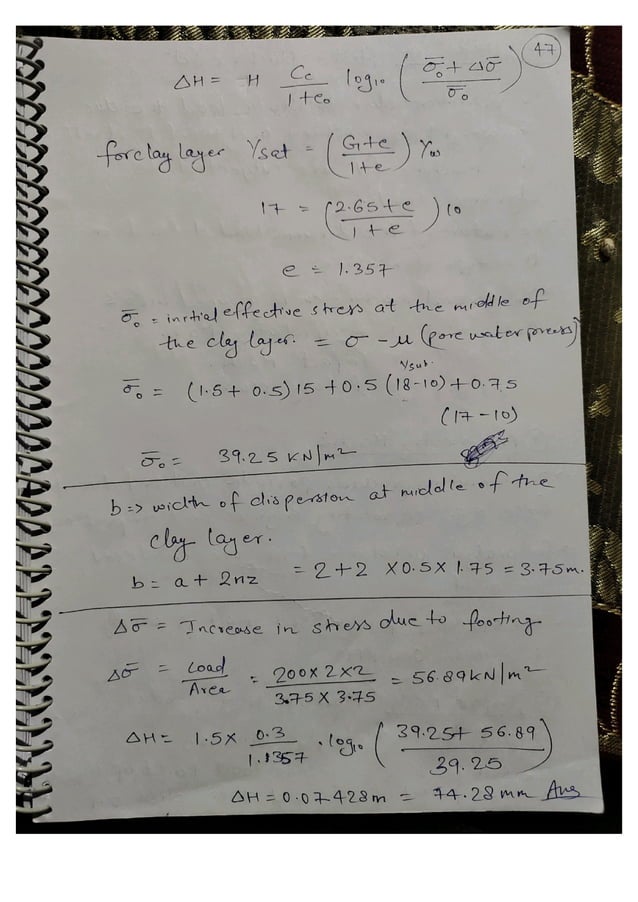 47
ΔH = H Cc / 1+e₀ log₁₀ ( σ̄₀ + Δσ̄ / σ̄₀ )
for clay layer γsat = ( G+e / 1+e ) γw
17 = ( 2.65+e / 1+e ) 10
e = 1.357
σ̄₀ = initial effective stress at the middle of
the clay layer. = σ - u (pore water press)
γsub.
σ̄₀ = (1.5+ 0.5) 15 + 0.5 (18-10) + 0.75
(17-10)
σ̄₀ = 39.25 KN/m²
b => width of dispersion at middle of the
clay layer.
b = a + 2nz = 2+2 X 0.5 X 1.75 = 3.75m.
Δσ̄ = Increase in stress due to footing
Δσ̄ = Load / Area = 200 X 2 X 2 / 3.75 X 3.75 = 56.89 KN/m²
ΔH = 1.5 X 0.3 / 1.1357 . log₁₀ ( 39.25+ 56.89 / 39.25 )
ΔH = 0.07428m = 74.28 mm Ans